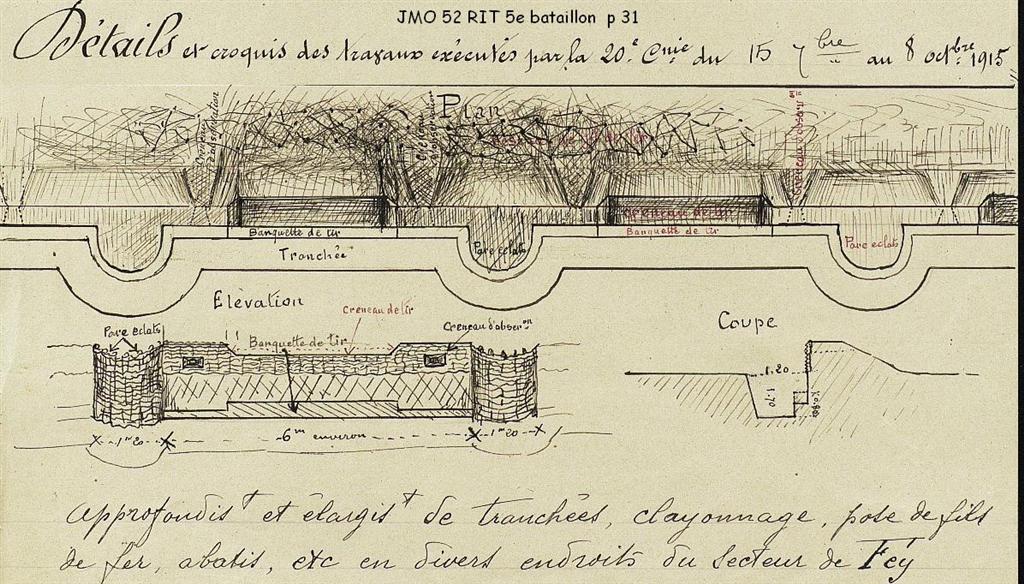 JMO 52 RIT 5e bataillon p 31
Détails et croquis des travaux exécutés par la 20e Cnie du 15 7bre au 8 octbre 1915
Plan
Créneau de tir
Banquette de tir
Banquette de tir
Tranchée
Pare eclats
Pare eclats
Elévation
Creneau de tir
Pare eclats
Banquette de tir
Creneau d'obseron
Coupe
1.20
1.70
1m20
6m environ
1m20
Approfondist et élargist de tranchées, clayonnage, pose de fils
de fer, abatis, etc en divers endroits du Secteur de Fey